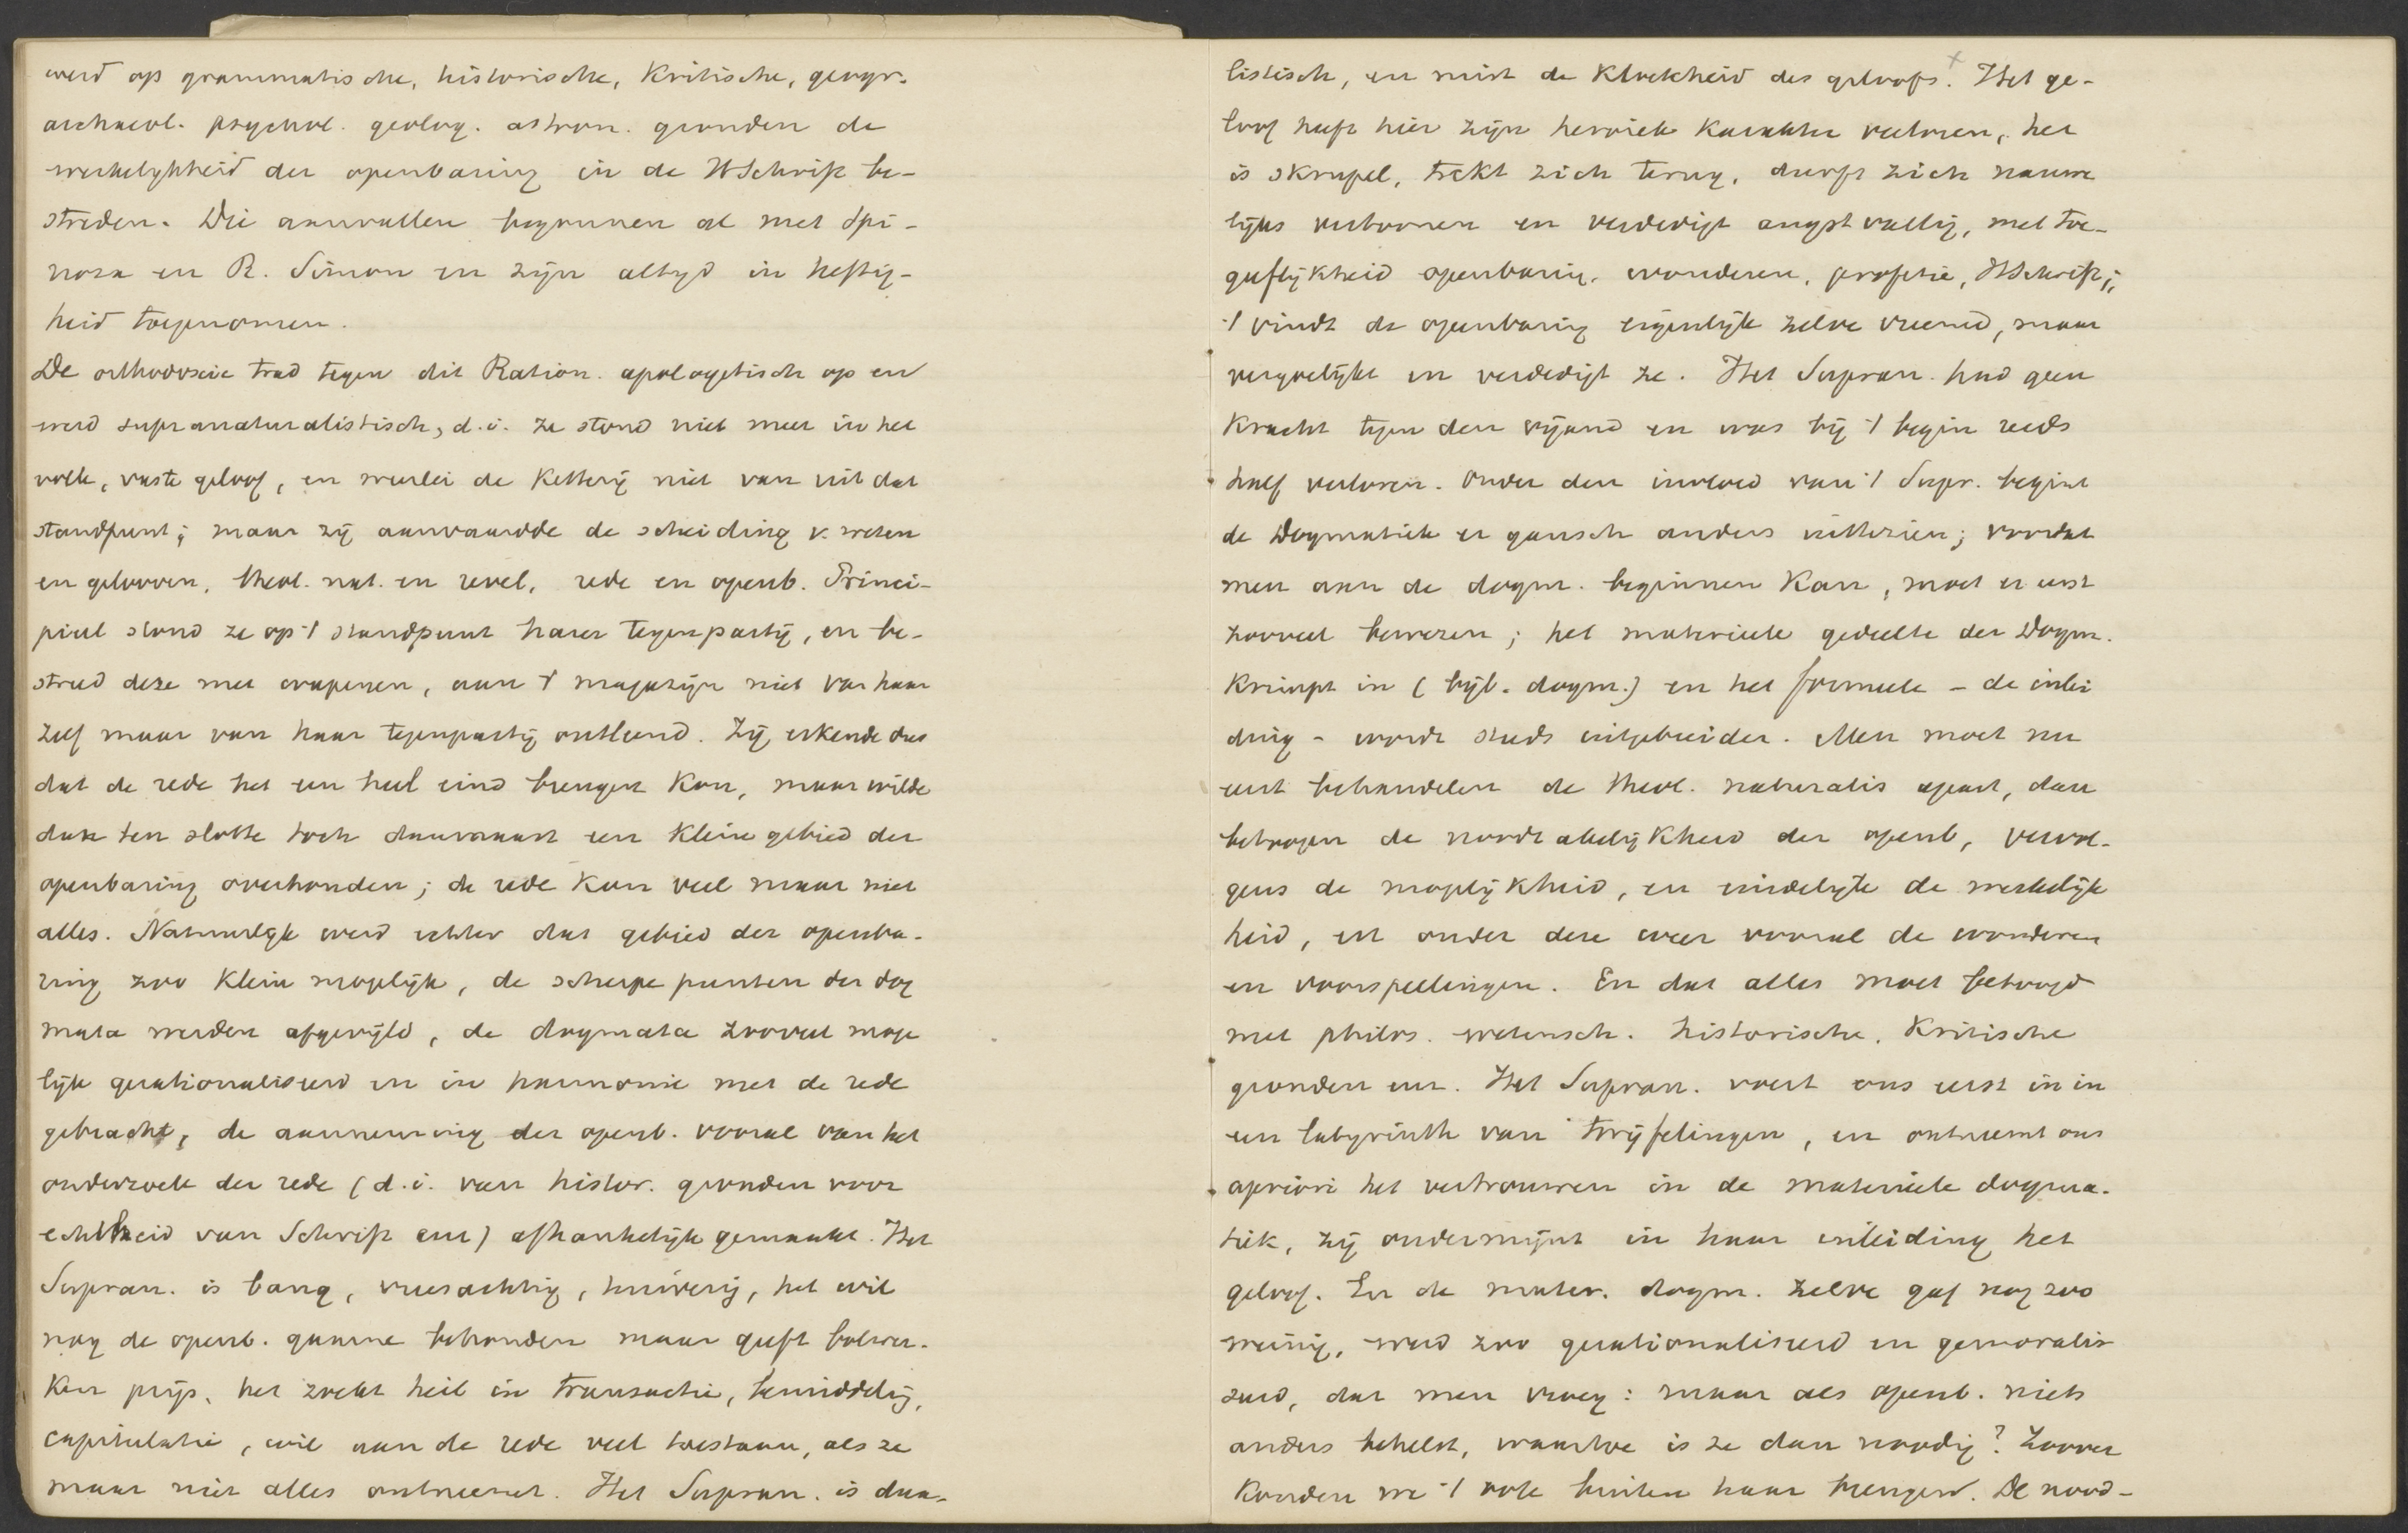 werd op grammatische, historische, kritische, geogr.
archaeol. psychol. geolog. astron. gronden de
werkelykheid der openbaring in de HSchrift be-
streden. Die aanvallen begonnen al met Spi-
noza en R. Simon en zijn altyd in heftig-
heid toegenomen.
De orthodoxie trad tegen dit Ration. apologetisch op en
werd supranaturalistisch, d.i. ze stond niet meer in het
volle, vaste geloof, en weerlei de ketterij niet van uit dat
standpunt; maar zij aanvaardde de scheiding v. weten
en gelooven, theol. nat. en revel, rede en openb. Princi-
pieel stond ze op 't standpunt harer tegenpartij, en be-
streed deze met wapenen, aan 't magazijn niet van haar
zelf maar van haar tegenpartij ontleend. Zij erkende dus
dat de rede het een heel eind brengen kon, maar wilde
dan ten slotte toch daarnaast een klein gebied der
openbaring overhouden; de rede kan veel maar niet
alles. Natuurlyk werd echter dat gebied der openba-
ring zoo klein mogelijk, de scherpe punten der dog
mata werden afgevijld, de dogmata zooveel moge
lijk gerationaliseerd en in harmonie met de rede
gebracht, de aanneming der openb. vooral van het
onderzoek der rede (d.i. van histor. gronden voor
echtheid van Schrift enz) afhankelijk gemaakt. Het
Supran. is bang, vreesachtig, huiverig, het wil
nog de openb. gaarne behouden maar geeft bolwer-
ken prijs, het zoekt heil in transactie, bemiddelig,
capitulatie, wil aan de rede veel toestaan, als ze
maar niet alles ontneemt. Het Supran. is dua-
listisch, en mist de kloekheid des geloofs. Het ge-
loof heeft hier zijn heroiek karakter verloren, het
is skrupel, trekt zich terug, durft zich nauwe
lijks vertoonen en verdedigt angstvallig, met toe-
geeflijkheid openbaring, wonderen, profetie, HSchrift;
't vindt de openbaring eigenlijk zelve vreemd, maar
vergoelijkt en verdedigt ze. Het Supran. had geen
kracht tegen den vijand en was bij 't begin reeds
half verloren. Onder den invloed van 't Supr. begint
de Dogmatiek er gansch anders uittezien; voordat
men aan de dogm. beginnen kan, moet er eerst
zooveel bewezen; het materieele gedeelte der Dogm.
krimpt in (bijb. dogm.) en het formeele - de inlei
ding - wordt steeds uitgebreider. Men moet nu
eerst behandelen de theol. naturalis apart, dan
betoogen de noodzakelijkheid der openb, vervol-
gens de mogelijkheid, en eindelijk de werkelijk
heid, en onder deze weer vooral de wonderen
en voorspellingen. En dat alles moet betoogd
met philos. wetensch. historische, kritische
gronden enz. Het Supran. voert ons eerst in in
een labyrinth van twijfelingen, en ontneemt ons
apriori het vertrouwen in de materieele dogma-
tiek, zij ondermijnt in haar inleiding het
geloof. En de mater. dogm. zelve gaf nog zoo
weinig, werd zoo gerationaliseerd en gemoralis
eerd, dat men vroeg: maar als openb. niets
anders behelst, waartoe is ze dan noodig? Zoover
konden we 't ook buiten haar brengen. De nood-